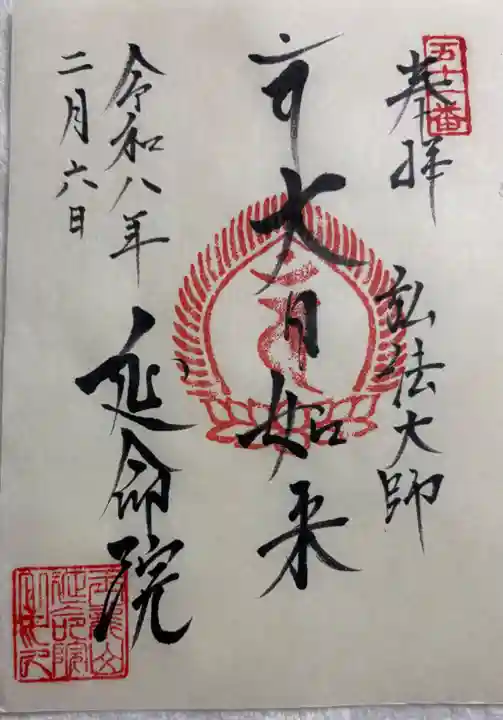 五十一番
奉拝
弘法大師
大日如来
令和八年
二月六日
延命院